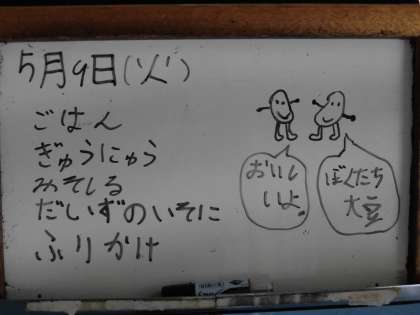 5月9日(火)
ごはん
ぎゅうにゅう
みそしる
だいずのいそに
ふりかけ
おいし
いよ。
ぼくたち
大豆